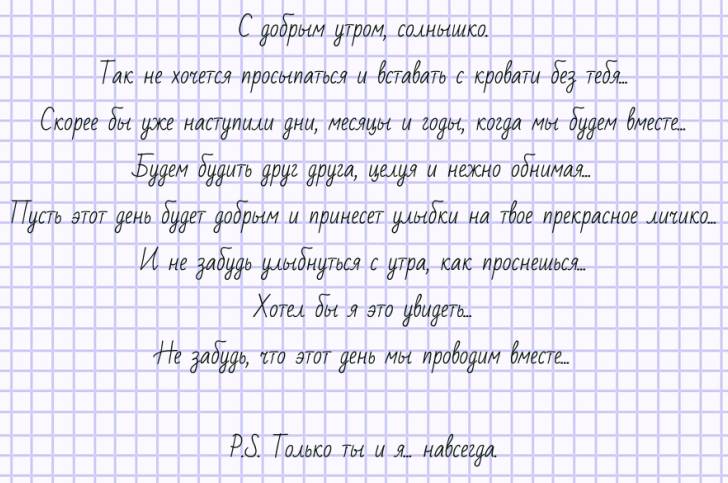 С добрым утром, солнышко.
Так не хочется просыпаться и вставать с кровати без тебя...
Скорее бы уже наступили дни, месяцы и годы, когда мы будем вместе...
Будем будить друг друга, целуя и нежно обнимая...
Пусть этот день будет добрым и принесет улыбки на твое прекрасное личико...
И не забудь улыбнуться с утра, как проснешься...
Хотел бы я это увидеть...
Не забудь, что этот день мы проводим вместе...
P.S. Только ты и я... навсегда.